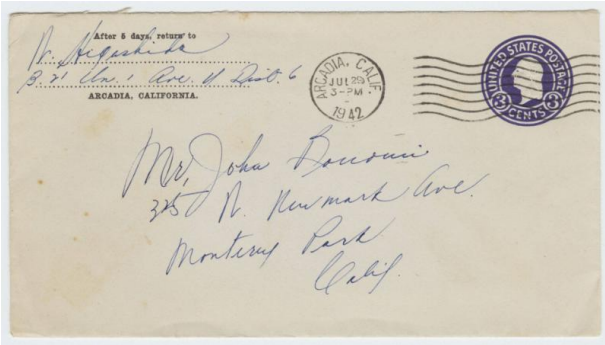 After 5 days, return to
N. Higashida
B. 21 Un. 1 Ave. N Dist. 6
ARCADIA, CALIFORNIA.
ARCADIA, CALIF.
JUL 29
3-PM
1942
UNITED STATES POSTAGE
3 CENTS 3
Mr. John
325 N. Newmark Ave.
Monterey Park
Calif.